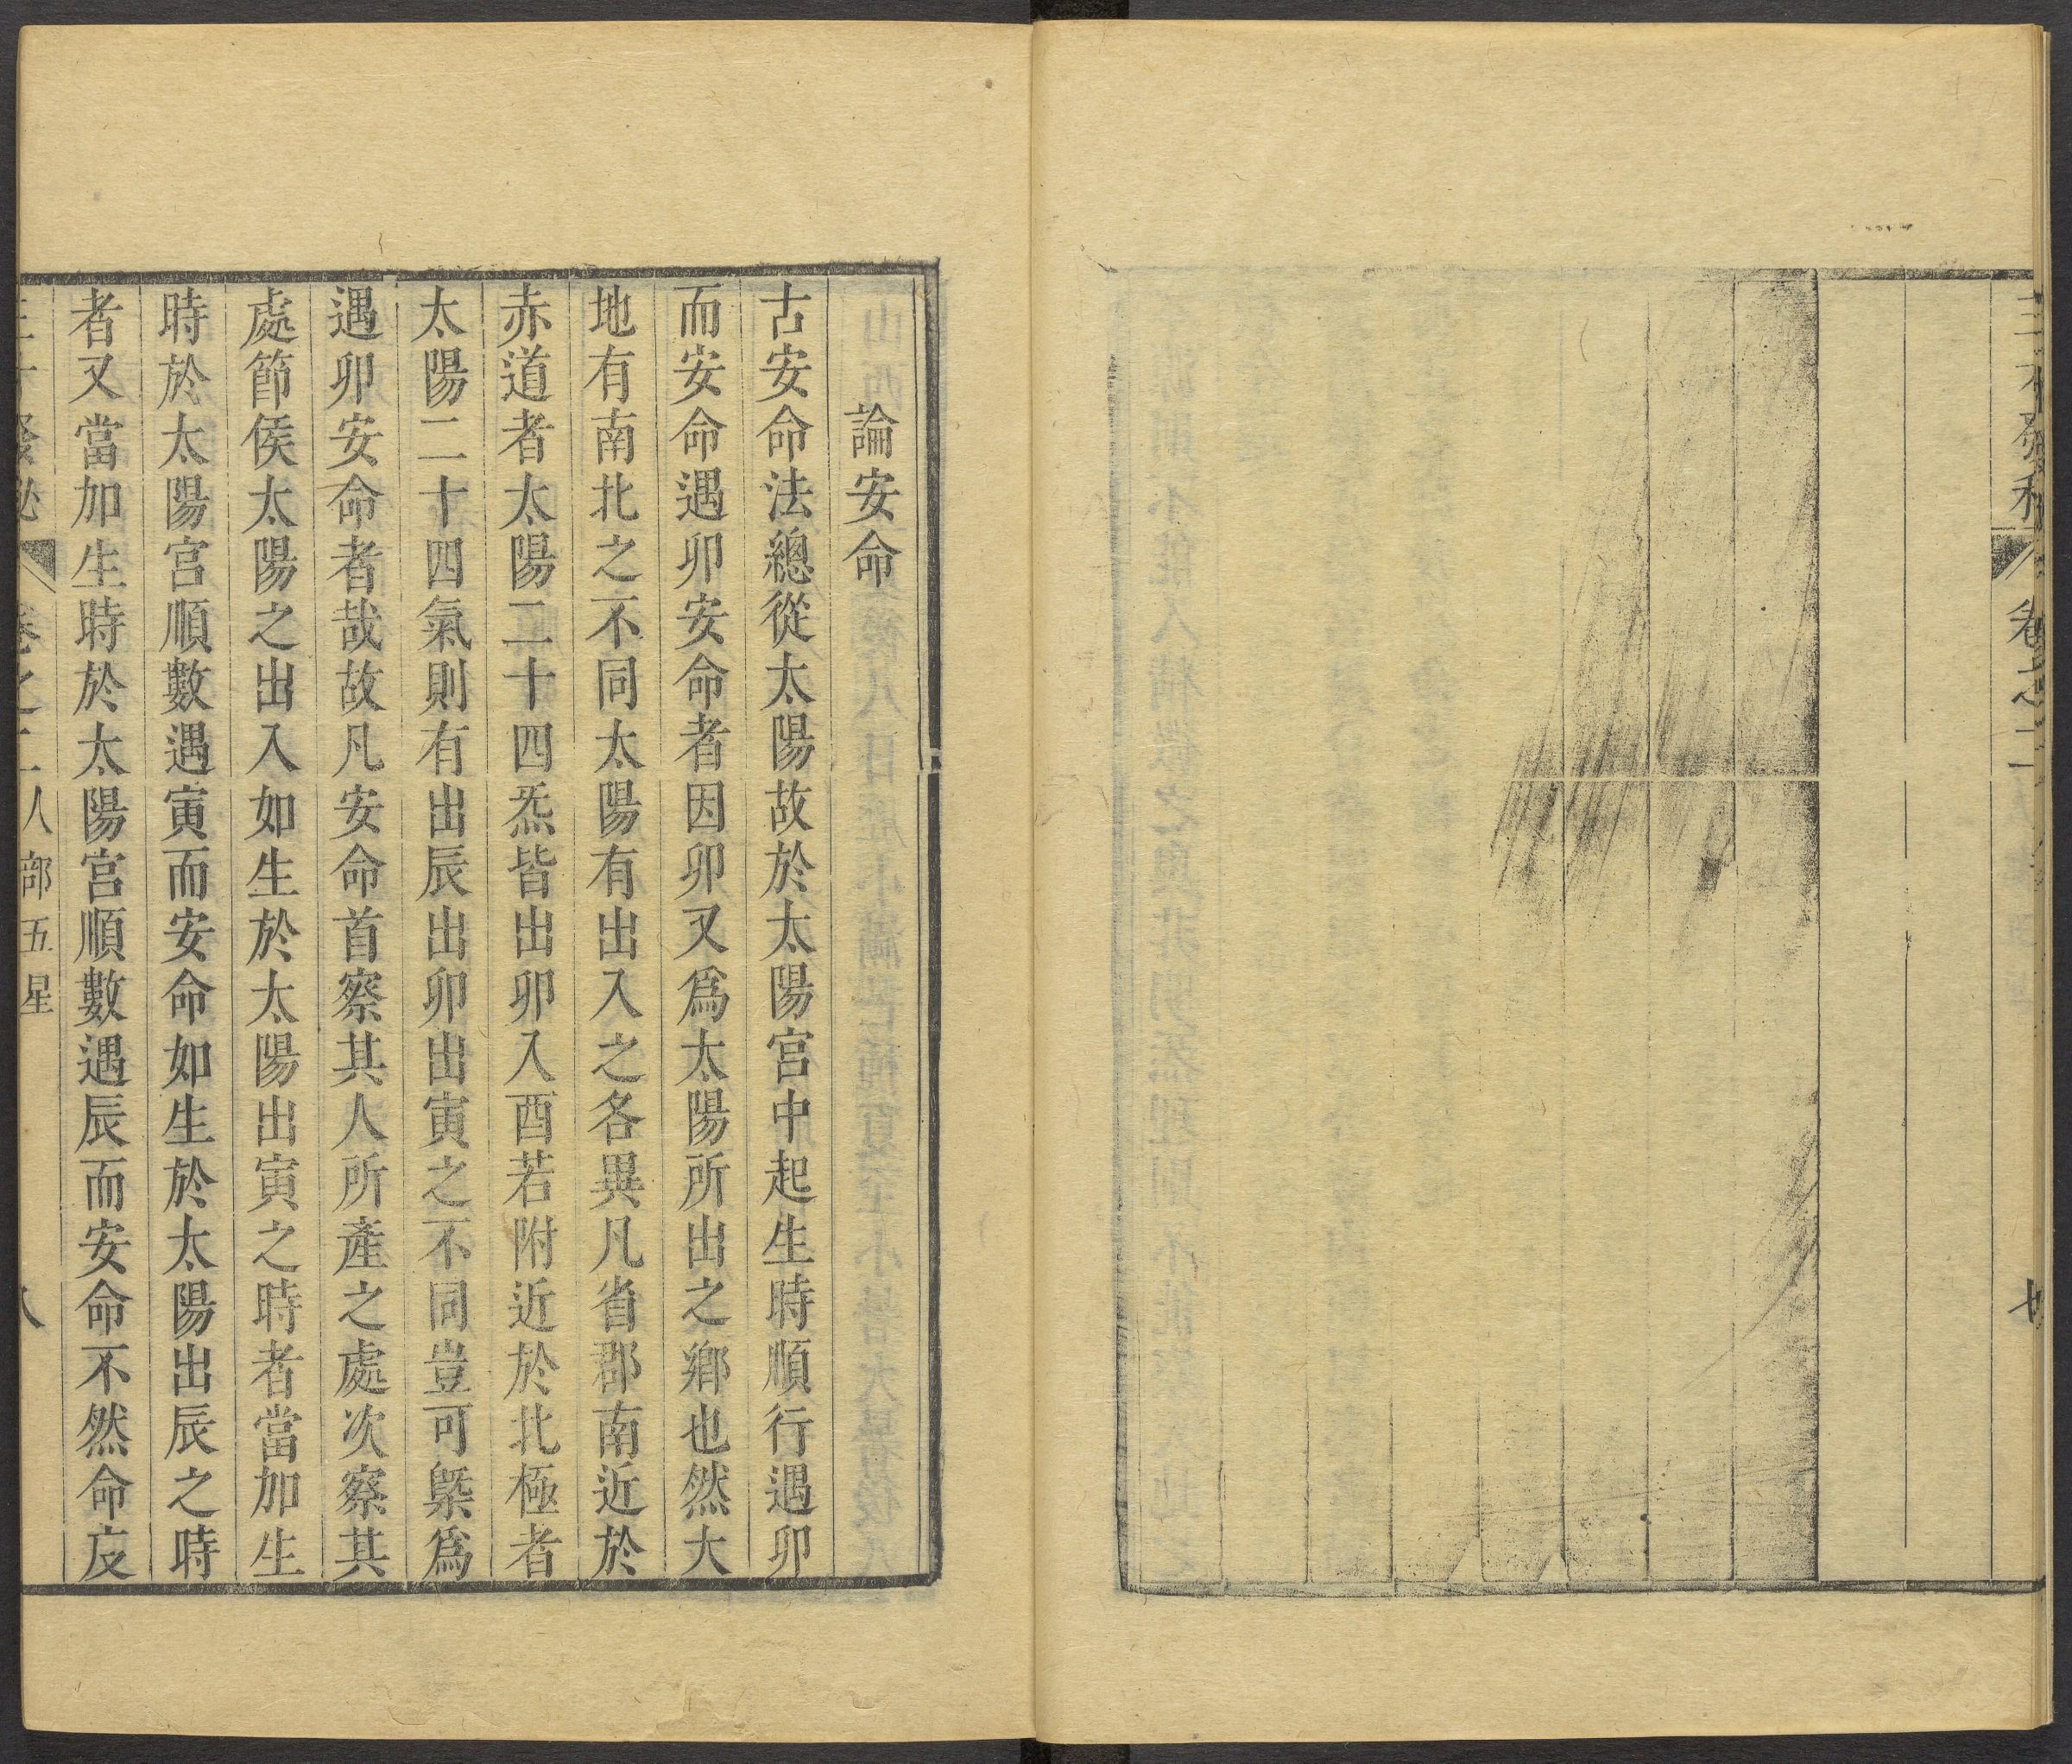 三才發秘
卷之二
七
論安命
古安命法總從太陽故於太陽宮中起生時順行遇卯
而安命遇卯安命者因卯又爲太陽所出之鄉也然大
地有南北之不同太陽有出入之各異凡省郡南近於
赤道者太陽二十四炁皆出卯入酉若附近於北極者
太陽二十四氣則有出辰出卯出寅之不同豈可槩爲
遇卯安命者哉故凡安命首察其人所產之處次察其
處節侯太陽之出入如生於太陽出寅之時者當加生
時於太陽宮順數遇寅而安命如生於太陽出辰之時
者又當加生時於太陽宮順數遇辰而安命不然命度
三才發秘 卷之二 人部五星 八